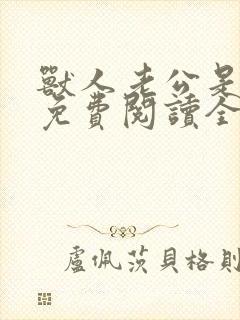 獸人老公是
免費閱讀全
盧佩茨貝格則